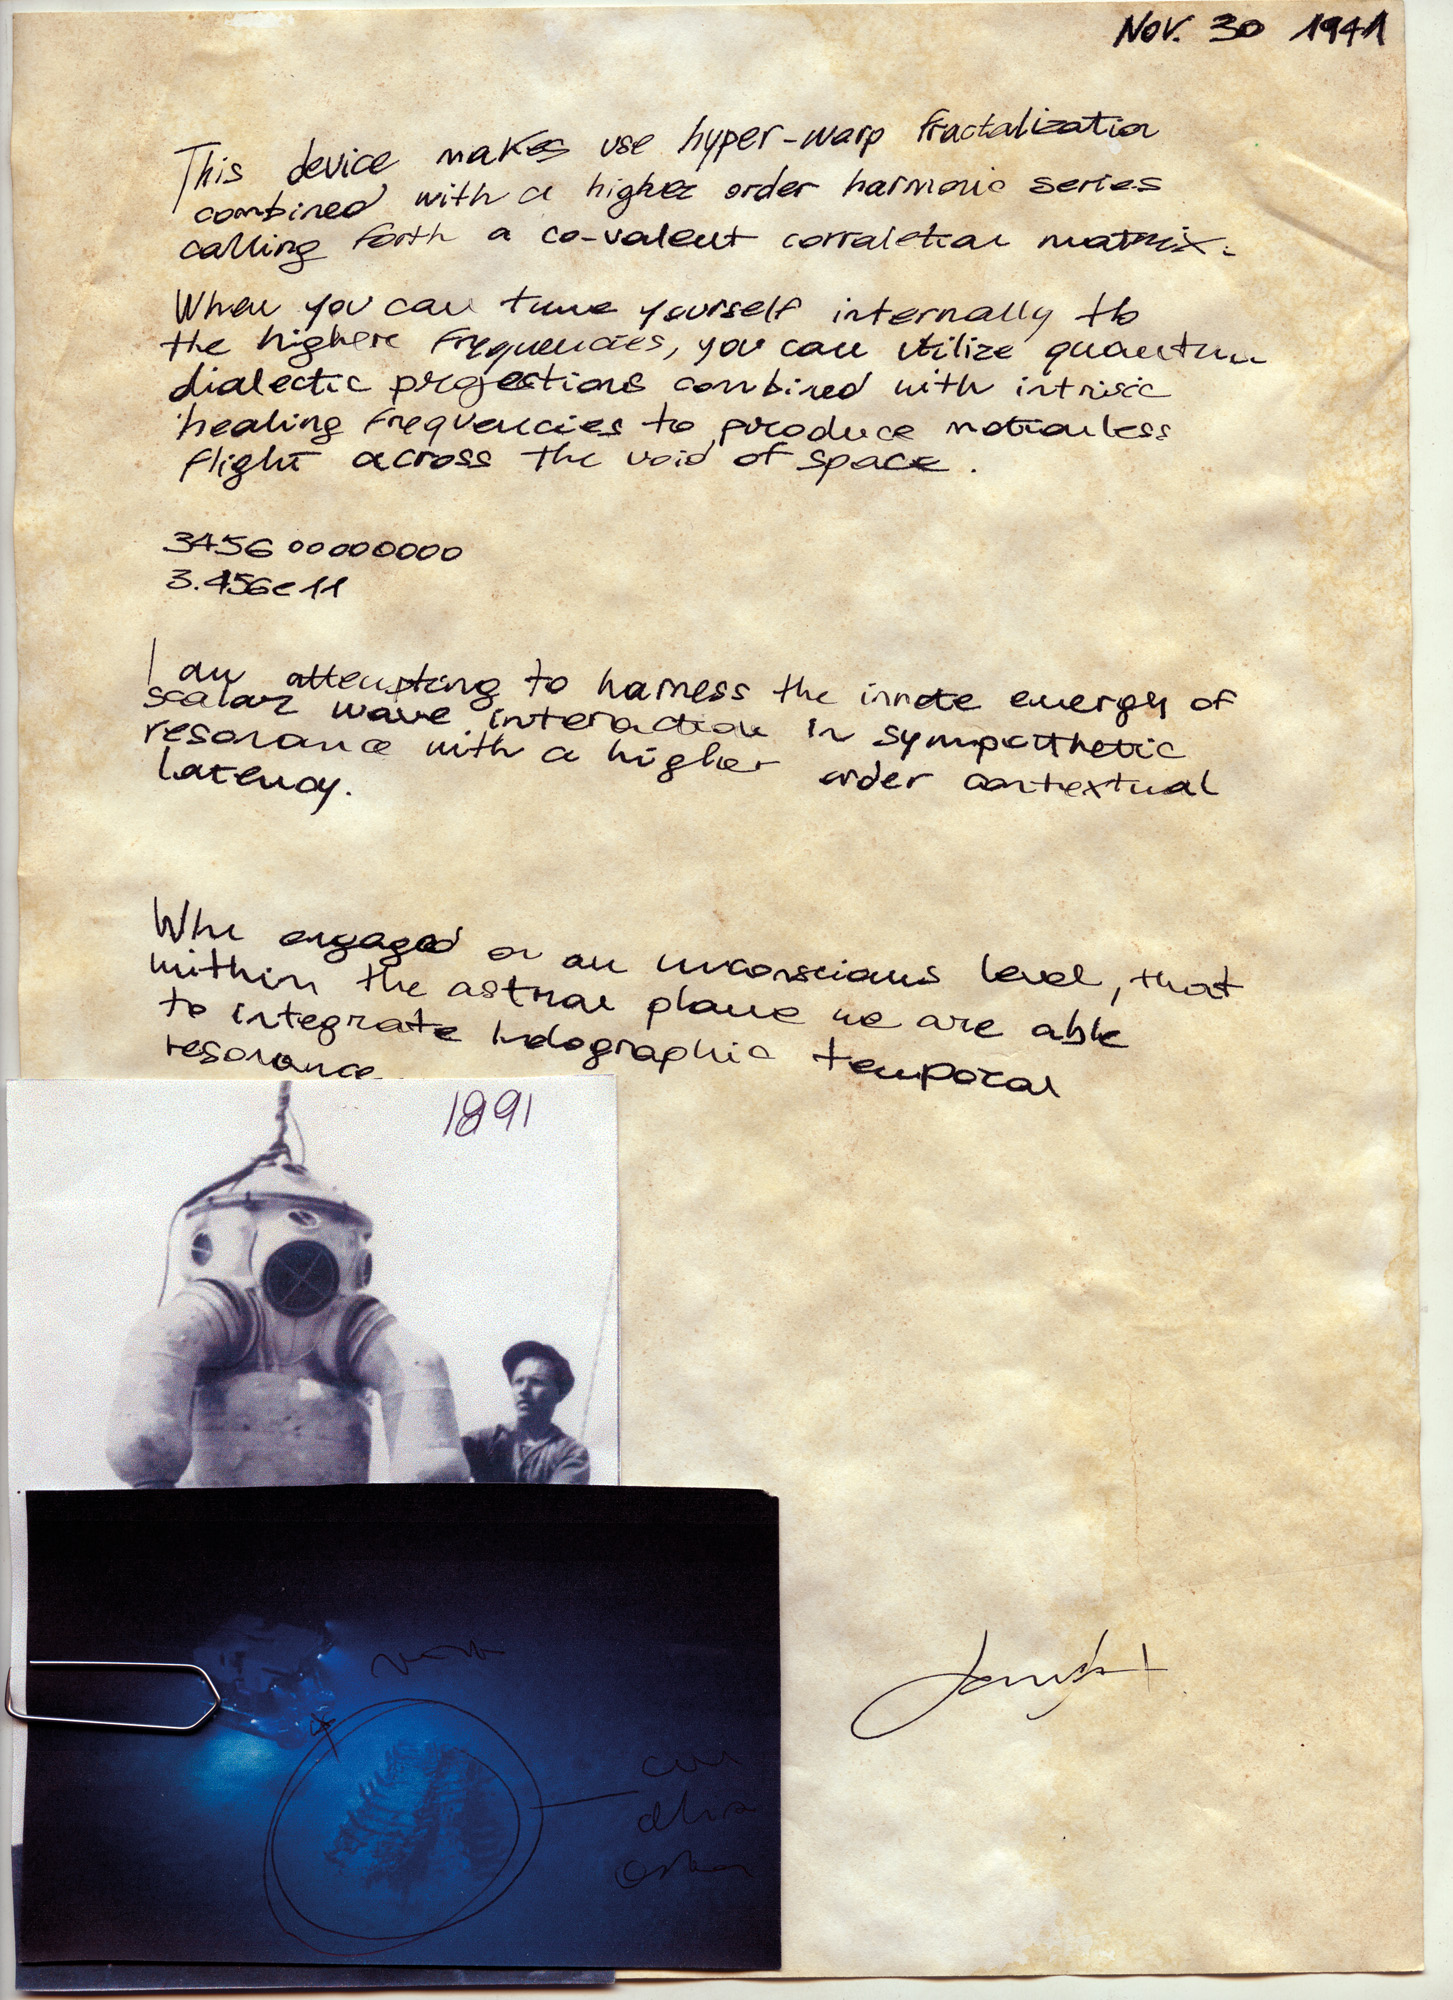 Nov. 30 1941
This device makes use hyper-warp fractalization
combined with a higher order harmonic series
calling forth a co-valent corraletion matrix.
When you can tune yourself internally to
the highere frequencies, you can utilize quantum
dialectic projections combined with intrisic
healing frequencies to produce motionless
flight across the void of space.
345600000000
3.456e11
I am attempting to harness the innate energy of
scalar wave interaction in sympatthetic
resonance with a higher order contextual
latency.
Whe engaged on an unconscious level, that
within the astral plane we are able
to integrate holographic temporal
resonance
1891